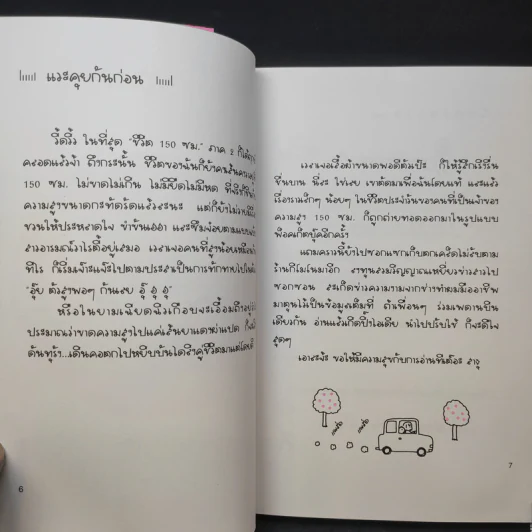 แวะคุยกันก่อน
วี้ดวิ้ว ในที่สุด "ชีวิต 150 ซม." ภาค 2 ก็ได้
คลอดแล้วจ้า ถึงกระนั้น ชีวิตของฉันก็ยัง
150 ซม. ไม่ขาดไม่เกิน ไม่มียืดไม่มีหด
ความสูงขนาดกะทัดรัดแล้วละนะ แต่ก็ยังไม่
ชวนให้ประหลาดใจ ขำขันฮา และซึมน้อยตาม
สาวอารมณ์ไวไรตี้อยู่เสมอ เวลาเจอคนที่สูงน้อยเหมือน
ทีไร ก็เริ่มเจ๊าะแจ๊ะไปตามประสาเป็นการทักทาย
"อุ๊ย ตัวสูงพอๆ กันเลย อุ๊ อุ๊ อุ๊"
หรือในยามเฉียดฉิวเกือบจะเอื้อมถึง
ประมาณว่าขาดความสูงไปแค่เส้นยาแดงผ่าแปด ก็
ต้นทุร้า...เดินคอตกไปหยิบบันไดลิงคู่ชีวิตมาแต่โดยดี
6
เวลาเจอเสื้อผ้าขนาดพอดีตัวเป๊ะ ก็ให้รู้สึกเริงรื่น
ชื่นบาน นี่ละ ใช่เลย เขาตัดมาเพื่อฉันโดยแท้ และแล้ว
เรื่องราวเล็กๆ น้อยๆ ในชีวิตประจำวันของคนที่เป็นเจ้าของ
ความสูง 150 ซม. ก็ถูกถ่ายทอดออกมาในรูปแบบ
พ็อคเก็ตบุ๊คอีกครั้ง
แถมคราวนี้ยังไปซอกแซกเก็บตกเคล็ดไม่ลับตาม
ร้านกิโมโนมาอีก ราทูนรวมวิญญาณเหยี่ยวข่าวสาวไป
ซอกซอน ละเกิดข่าวความงามจากช่างทำผมมืออาชีพ
มาตุนไว้เป็นข้อมูลเต็มที่ ถ้าเพื่อนๆ ร่วมเพดานบิน
เดียวกัน อ่านแล้วเกิดปิ๊งไอเดีย นำไปปรับใช้ ก็จะดีใจ
สุดๆ
เอาละจ้ะ ขอให้มีความสุขกับการอ่านทีเต๊อะ สาธุ
7